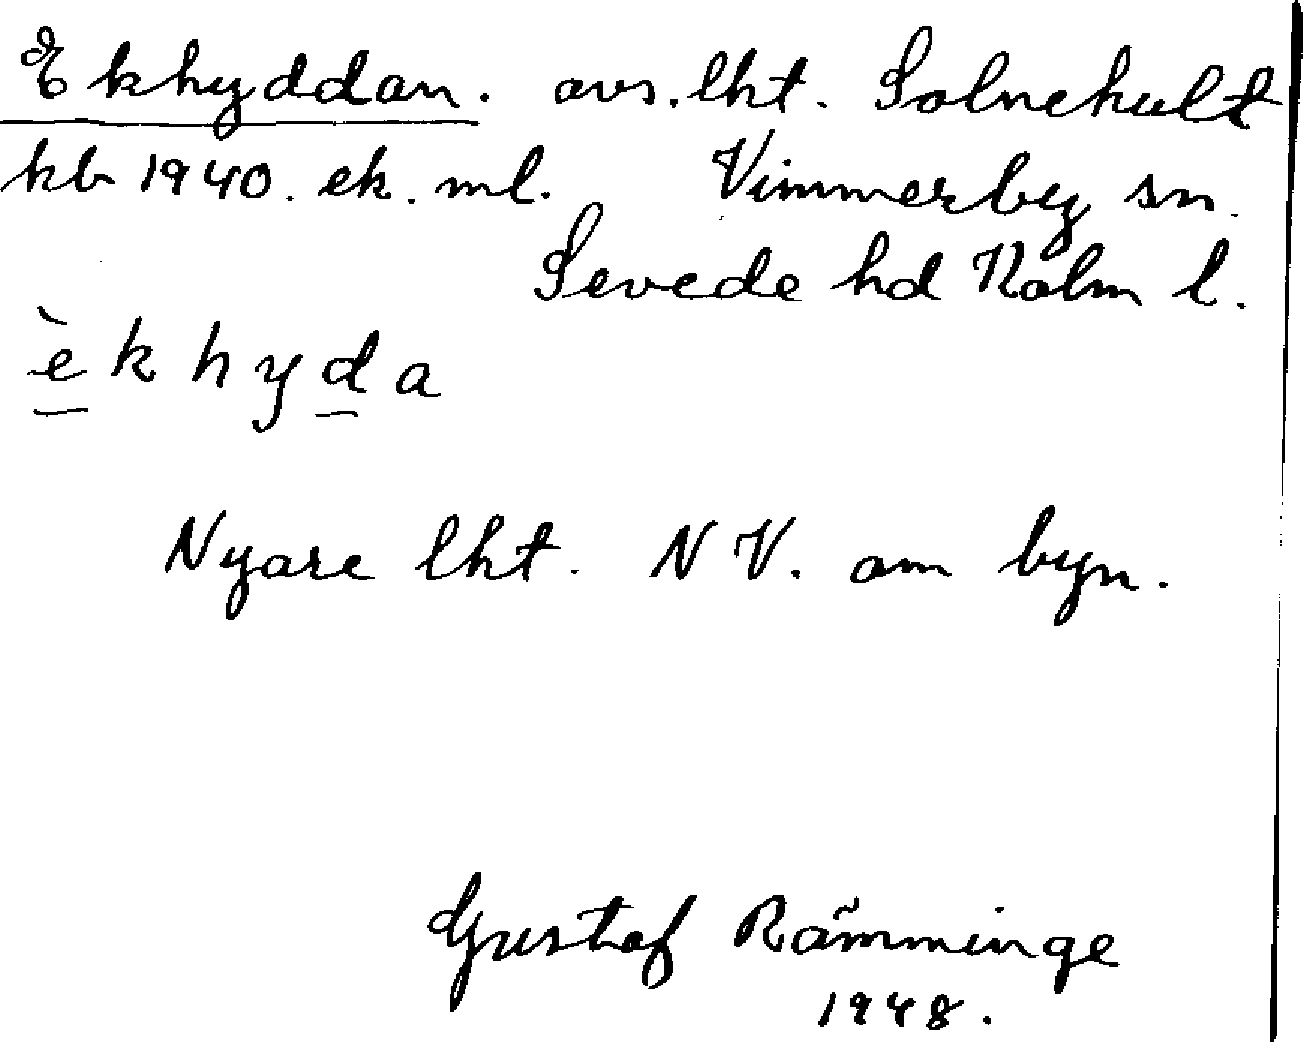 Ekhyddan. avs. lht. Solnehult
kb 1940. ek. ml. Vimmerby sn.
Sevede hd Kalm l.
èkhyda
Nyare lht. N V. om byn.
Gustaf Rämminge
1948.